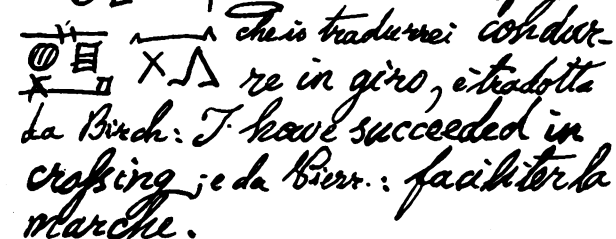 che io tradurrei condur-
re in giro, è tradotta
da Birch: I have succeeded in
crossing; e da Pierr.: faciliter la
marche.